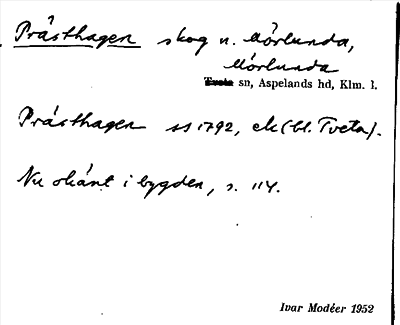 Prästhagen skog n. Mörlunda,
Mörlunda
Tveta sn, Aspelands hd, Klm. l.
Prästhagen SS 1792, ek (bl. Tveta).
Nu okänt i bygden, s. 114.
Ivar Modéer 1952